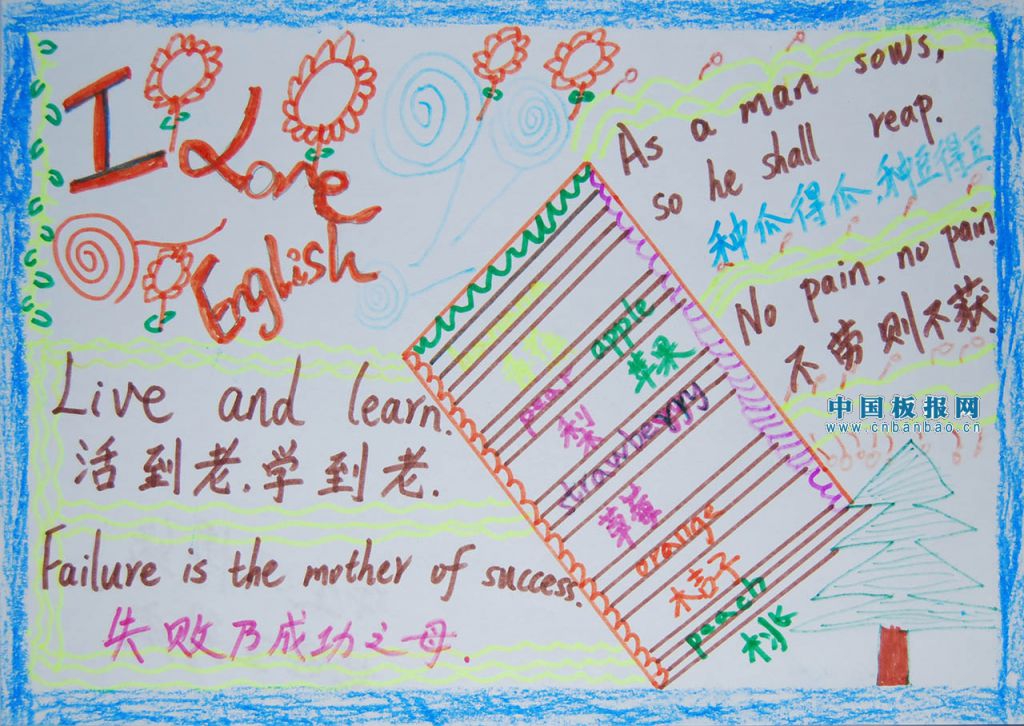 I Love
English
As a man sows,
so he shall reap.
种瓜得瓜.种豆得豆
No pain. no pain.
不劳则不获.
中国板报网
www.cnbanbao.cn
apple
苹果
pear
梨
strawberry
草莓
orange
桔子
peach
桃
Live and learn.
活到老.学到老.
Failure is the mother of success.
失败乃成功之母.